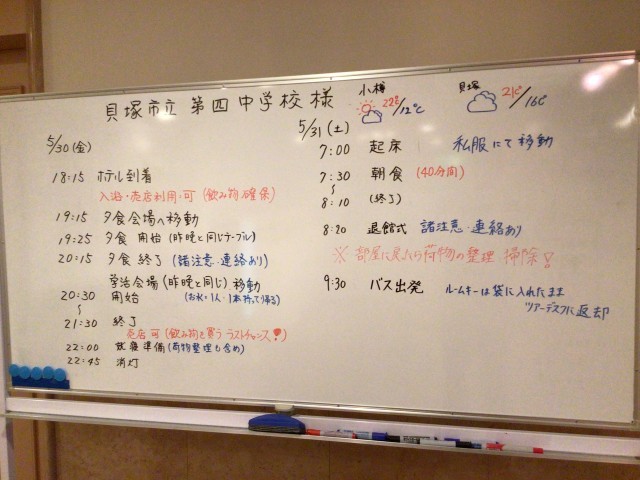 貝塚市立 第四中学校様
小樽 22℃/12℃
貝塚 21℃/16℃
5/30(金)
18:15 ホテル到着
入浴・売店利用・可(飲み物確保)
19:15 夕食会場へ移動
19:25 夕食 開始(昨晩と同じテーブル)
20:15 夕食 終了(諸注意・連絡あり)
学治会場(昨晩と同じ)移動
20:30 開始(お水=1人・1本持って帰る)
〜
21:30 終了
売店 可(飲み物を買う ラストチャンス!)
22:00 就寝準備(荷物整理も含め)
22:45 消灯
5/31(土)
7:00 起床 私服にて移動
7:30 朝食(40分間)
〜
8:10 (終了)
8:20 退館式 諸注意・連絡あり
※部屋に戻ったら荷物の整理 掃除!
9:30 バス出発 ルームキーは袋に入れたまま
ツアーデスクに返却